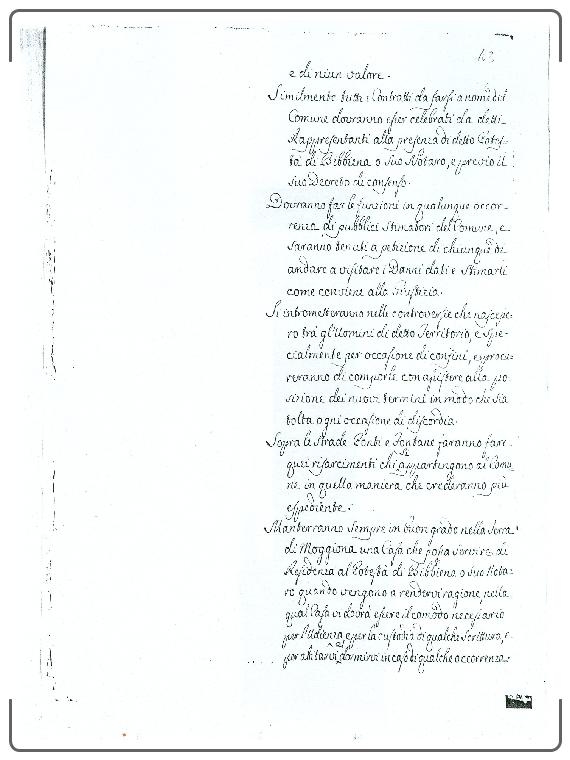 43
e di niun valore.
Similmente tutti i Contratti da farsi a nome del
Comune dovranno esser celebrati da detti
Rappresentanti alla presenza di detto Potes-
tà di Bibbiena o suo Notaro, e previo il
suo Decreto di consenso.
Dovranno far le funzioni in qualunque occor-
renza di pubblici Stimatori del Comune, e
saranno tenuti a petizione di chiunque di
andare a visitare i Danni dati e stimarli
come conviene alla Giustizia.
Si intrometteranno nelle controversie che nascesse-
ro trà gl'Uomini di detto Territorio, e spe-
cialmente per occasione di confini, e procu-
reranno di comporle con assistere alla po-
sizione dei nuovi termini in modo che sia
tolta ogni occasione di discordia.
Sopra le strade Ponti e Fontane faranno fare
quei risarcimenti che si appartengono al Comu-
ne in quella maniera che crederanno più
espediente.
Manterranno sempre in buon grado nella Terra
di Moggiona una Casa che possa servire di
Residenza al Potestà di Bibbiena o suo Nota-
ro quando vengono a rendervi ragione, nella
qual Casa vi dovrà essere il comodo necessario
per l'Udienza e per la custodia di qualche Scrittura, e
per abitarvi e dormirvi in caso di qualche occorrenza.